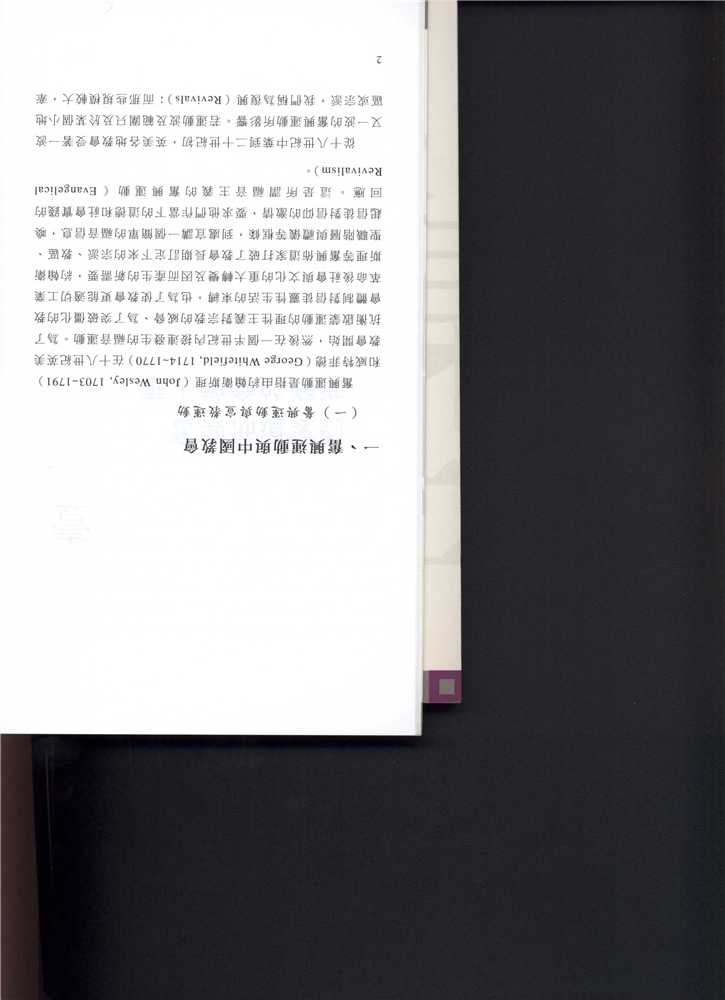 一、奮興運動與中國教會
（一）奮興運動與宣教運動
奮興運動是指由約翰衛斯理（John Wesley, 1703-1791）
和威特菲德（George Whitefield, 1714-1770）在十八世紀英美
教會開始，然後在一個半世紀內接連發生的福音運動。為了
抗衡啟蒙運動的理性主義對宗教的威脅、為了突破僵化的教
會體制對信徒靈性生活的束縛，也為了使教會更能適切工業
革命後社會與文化的重大轉變及因而產生的新需要，約翰衛
斯理等奮興佈道家打破了教會長期訂定下來的宗派、教區、
聖職階層與禮儀等框條，到處宣講一個簡單的福音信息，喚
起信徒對信仰的激情，要求他們作當下的道德和社會實踐的
回應。這是所謂福音主義的奮興運動（Evangelical
Revivalism）。
從十八世紀中葉到二十世紀初，英美各地教會受著一波
又一波的奮興運動所影響。若運動波及範圍只及於某個小地
區或宗派，我們稱為復興（Revivals）；而那些規模較大，牽
2